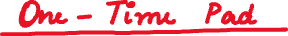 One-Time Pad